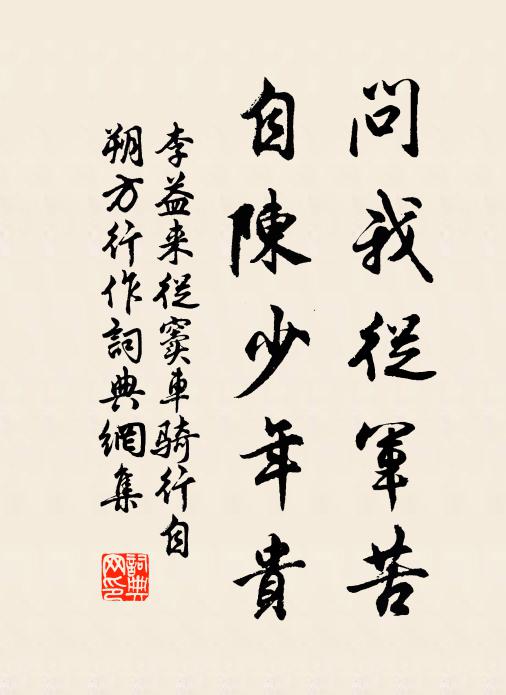 問我從軍苦
自陳少年貴
李益来從竇車騎行自
朔方行作詞典網集
詞典网印